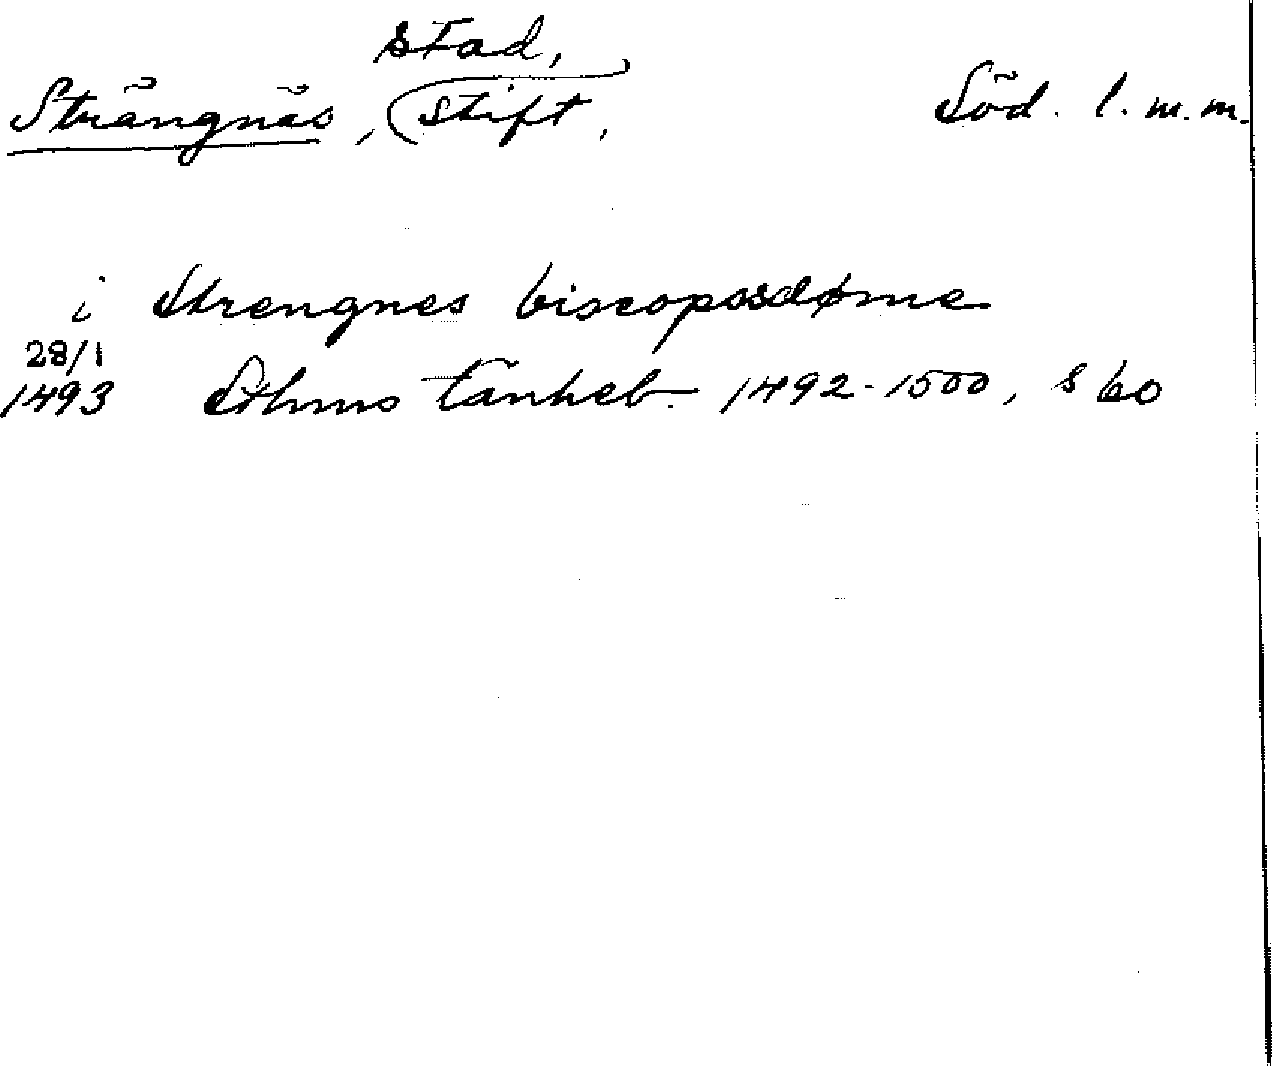 stad,
Strängnäs, stift, Söd. l. m.m.
i Strengnes biscoposdøme
28/1
1493 Sthms tänkeb. 1492-1500, s 60